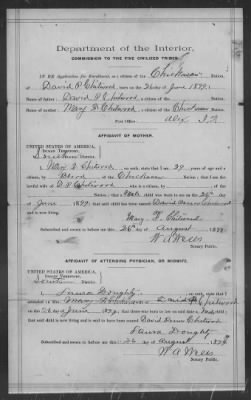 Department of the Interior,
COMMISSION TO THE FIVE CIVILIZED TRIBES.
IN RE Application for Enrollment, as a citizen of the Chickasaw Nation,
of David P. Chitwood, born on the 26 day of June 1899.
Name of Father: David P. Chitwood a citizen of the Nation.
Name of mother: Mary F. Chitwood a citizen of the Chickasaw Nation.
Alex I.T.
AFFIDAVIT OF MOTHER.
UNITED STATES OF AMERICA,
INDIAN TERRITORY,
Southern District.
I, Mary F. Chitwood, on oath state that I am 29 years of age and
a citizen by Blood of the Chickasaw Nation; that I am the
lawful wife of D. P. Chitwood who is a citizen, by
Nation; that a Male child was born to me on the 26th
day of June 1899; that said child has been named David
and is now living.
Mary F. Chitwood
Subscribed and sworn to before me this 26th day of August 1899
W A Wells
Notary Public.
AFFIDAVIT OF ATTENDING PHYSICIAN, OR MIDWIFE.
UNITED STATES OF AMERICA,
INDIAN TERRITORY,
Southern District.
I, Laura Doughty, on oath state that I
attended on Mary F. Chitwood, wife of David P. Chitwood
on the 26 day of June 1899; that there was born to her on said date a male child;
that said child is now living and is said to have been named David Chitwood
Laura Doughty
Subscribed and sworn to before me this 26 day of August 1899
W A Wells
Notary Public.